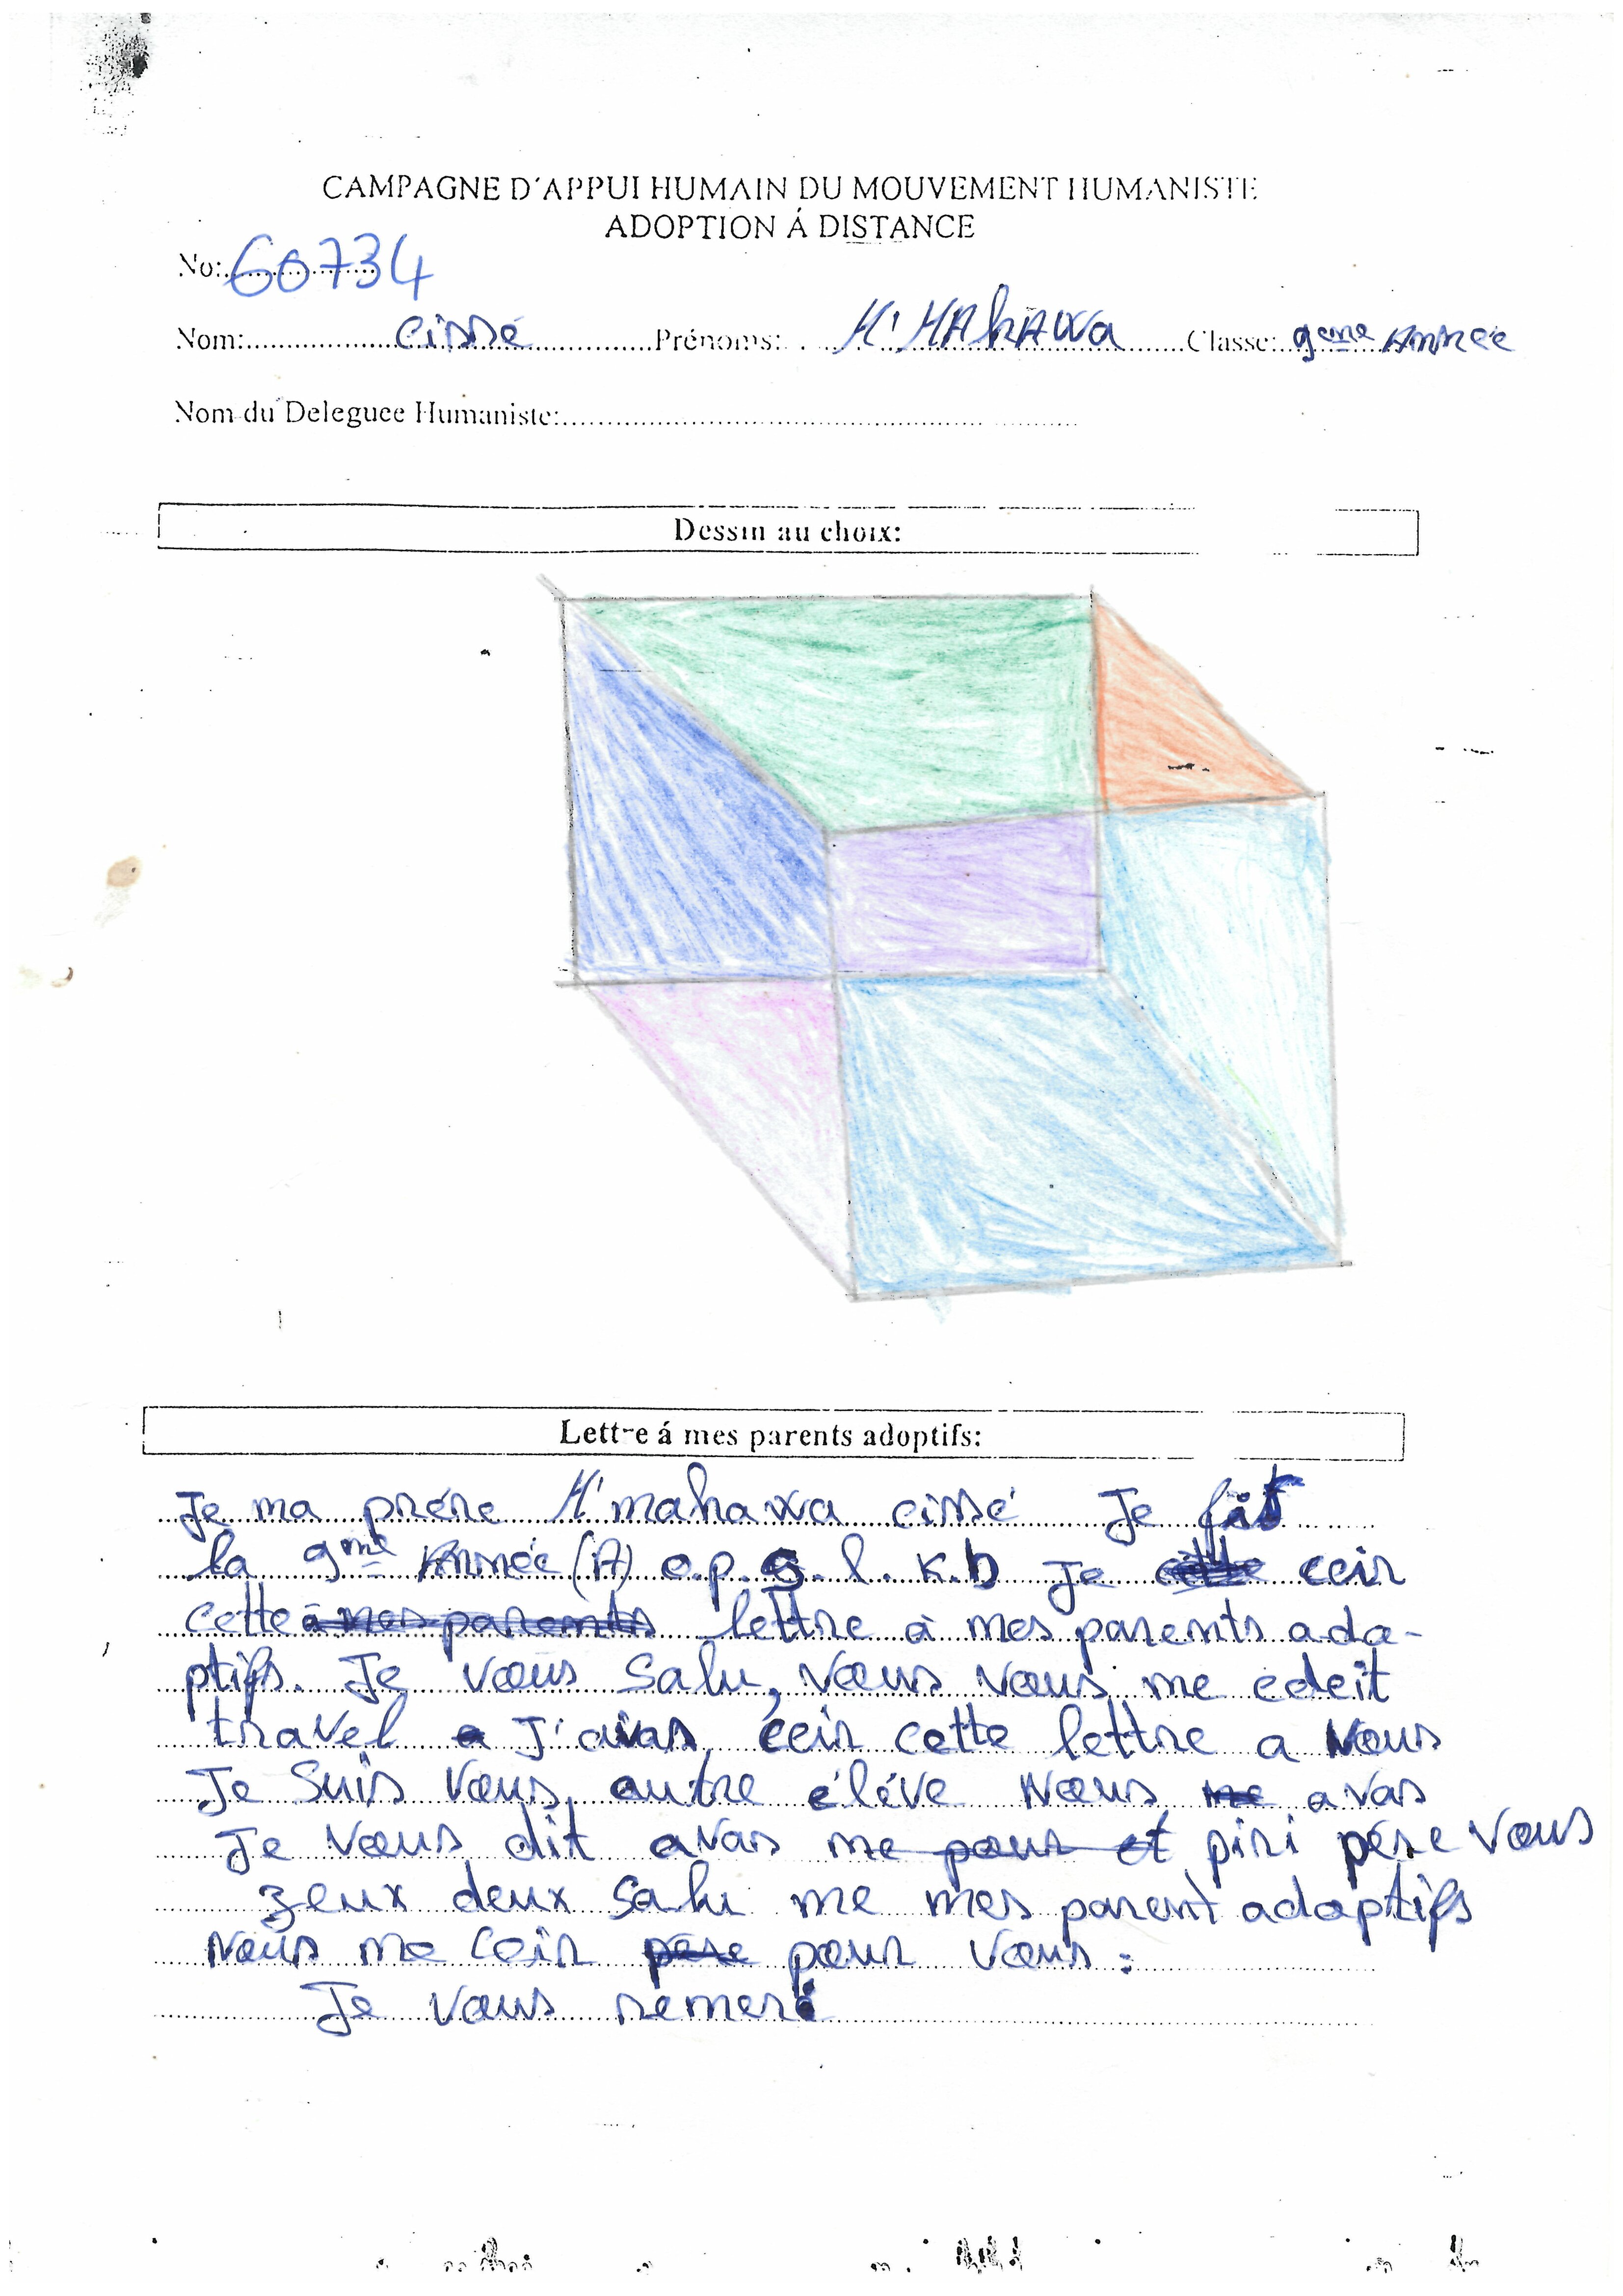 CAMPAGNE D'APPUI HUMAIN DU MOUVEMENT HUMANISTE
ADOPTION Á DISTANCE
No: 60734
Nom: cissé Prénoms: M'MAhAwa Classe: 9eme Année
Nom du Deleguee Humaniste:
Dessin au choix:
Lettre á mes parents adoptifs:
Je ma prére M'mahawa cissé Je fit
la 9eme Année (A) e.p.G.l.K.b Je ceir
cette lettre à mes parents ado-
ptifs. Je vous Salu, vous vous me edeit
travel J'aivas ceir cette lettre a Vous
Je Suis Vous autre éléve Nous avas
Je vous dit avas piri pére vous
zeux deux Salu me mes parent adoptifs
Nous me ceir pour vous :
Je vous remeré